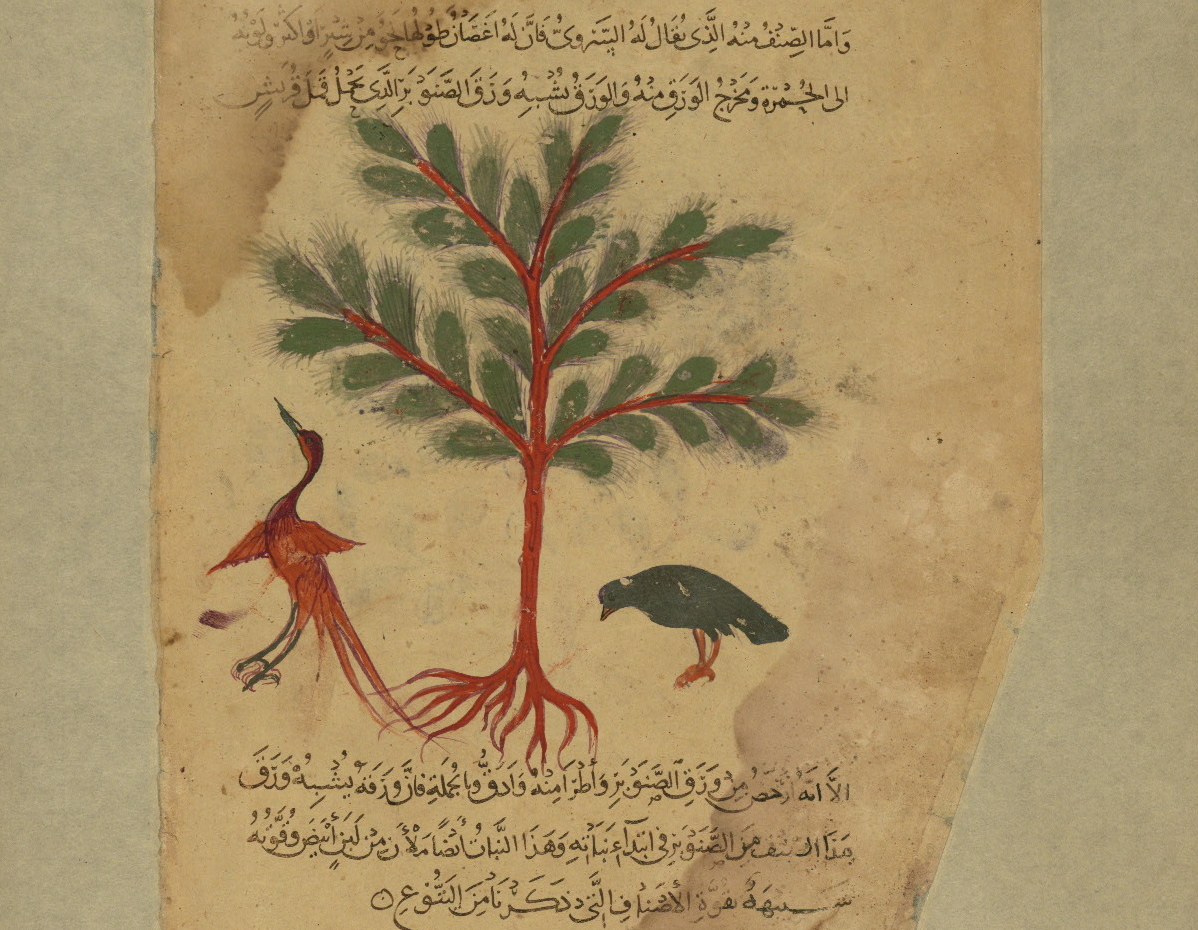 وَامَّا الصِّنْفُ مِنْهُ الَّذِى يُقَالُ لَهُ فَانَّ لَهُ اَغْصَانٌ طُولُهَا نَحْوٌ مِنْ شِبْرٍ اَوْ اَكْثَرُ وَلَوْنُهُ
الى الحُمْرَةِ وَمَخْرَجُ الوَرَقِ مِنْهُ وَالوَرَقُ يُشْبِهُ وَرَقَ الصَّنَوْبَرِ الَّذِى يَحْمِلُ قَمْلَ قُرَيْشٍ
الَّا انَّهُ اَرْخَصُ مِنْ وَرَقِ الصَّنَوْبَرِ وَأَطْرَا مِنْهُ وَاَدَقُّ وَبِالجُمْلَةِ فَانَّ وَرَقَهُ يُشْبِهُ وَرَقَ
هَذَا الصِّنْفِ مِنَ الصَّنَوْبَرِ فِى ابْتِدَآءِ نَبَاتِهِ وَهَذَا النَّبَاتُ أَيْضًا مَلْأَنُ مِنْ لَبَنٍ أَبْيَضَ وَقُوَّتُهُ
شَبِيهَةٌ بِقُوَّةِ الأَصْنَافِ الَّتِى ذَكَرْنَا مِنَ اليَتُّوعِ